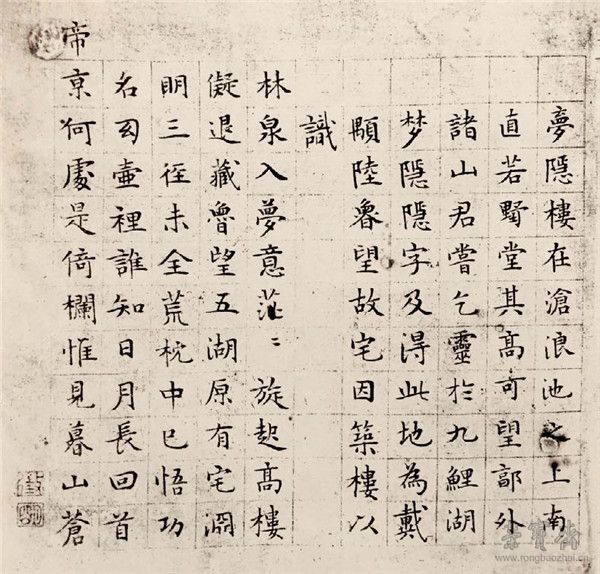 夢隱樓在滄浪池之上南
直若墅堂其高可望郭外
諸山君嘗乞靈於九鯉湖
梦隱隱字及淂此地為戴
顒陸魯望故宅因築樓以
識
林泉入夢意茫〻旋起高樓
儗退藏魯望五湖原有宅淵
明三徑未全荒枕中已悟功
名幻壷裡誰知日月長回首
帝京何處是倚欄惟見暮山蒼
徵明
榮寶齋
www.rongbaozhai.cn